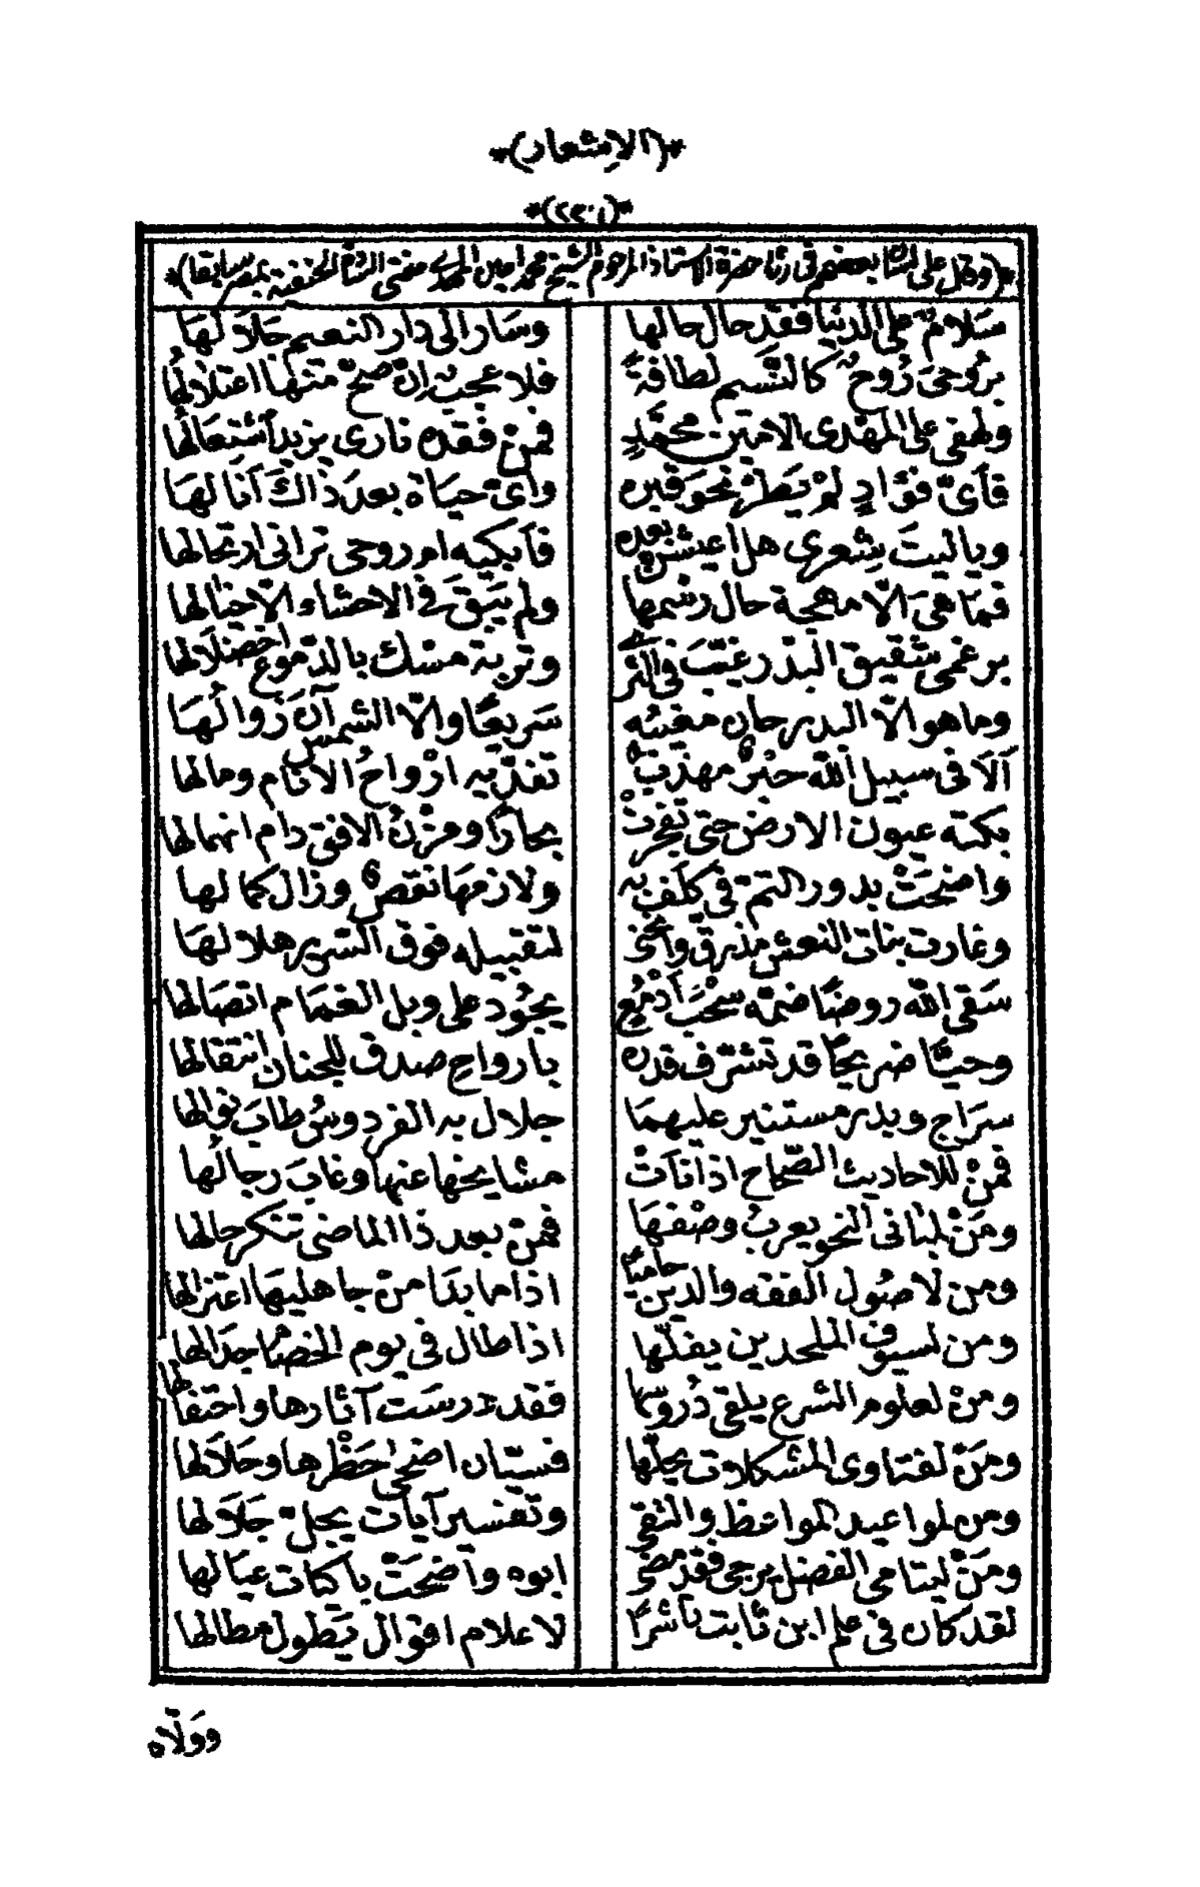 *(الاشعار)*
*(٢٣٠١)*
*(وقيل على لسان بعضهم فى رثاء حضرة الاستاذ المرحوم الشيخ محمد امين المهدى مفتى السادة الحنفية بمصر سابقا)*
سَلامٌ على الدنيا فقد حال حالها وسَار الى دار النعيم جَلَا لَهَا
بُروحىَ رُوحٌ كالنَّسيم لطافةً فلا عجب ان صحّ منها اعتلالُها
ولهفى على المهدى الامين محمّدٍ فمنْ فقده نارى يزيد اشتعالُها
فأىّ فؤادٍ لمْ يَطرْ نحوَ قبره وأىّ حيَاة بعدَ ذاك أنَا لهَا
وياليتَ شِعرى هل اعيش بعده فأبكيه ام روحى ترانى ارتحالها
فمَا هىَ الّا مهجة حال رسْمها ولم يَبقَ فى الاحشاء الّا خيَالها
برغمى شقيق البدر غيّبَ فى الثرى وتربة مسْك بالدّموع اخضلَالها
وما هو الّا البدر حان مغيبُه سَريعًا والّا الشمس آن زَوالُهَا
ألَا فى سبيل اللّه حبْرٌ مهذبٌ تفدّيه ارْواحُ الانام ومالها
بكته عيون الارض حتى تفجرتْ بحارًا ومزنُ الافق دام انهمالها
واضحَتْ بدور التمّ فى كلَف به ولازمهَا نقصٌ وزال كمالها
وغارت بنات النعش مذ رقّ وانحنى لتقبيله فوق السّرير هلالهَا
سَقى اللّه روضًا ضمّه سحْبَ أدْمُعٍ يجُود على وبل الغمَام اتصَالها
وحيّا ضريحًا قد تشرّف قدره بارواحِ صدق للجنان انتقالها
سرَاج وبدر مستنير عليهمَا جلال به الفردوسُ طابَ نوالها
فمَنْ للاحاديث الصّحاح اذا نأتْ مشايخها عنها وغابَ رجالُها
ومَنْ لمبانى النحو يعربُ وصْفهَا فمنْ بعد ذا الماضى تنكر حالها
ومن لاصُول الفقه والدين حاميًا اذا ما بدَا منْ جاهليهَا اعتزالها
ومن لسيوف الملحدين يفلّها اذا طال فى يوم الخصَام جدَالها
ومنْ لعلوم الشرع يلقى دُروسَها فقد درسَت آثارها واحتفالها
ومَنْ لفتاوى المشكلات يحلّها فسيّان اضحى حَظْرها وحَلَالها
ومن لمواعيد المواعظ والتقى وتفسير آيات يجلّ جَلَالها
ومَنْ ليتامى الفضل يرجى فقد مضى ابوه واضحَتْ باكيات عيَالها
لقد كان فى علم ابن ثابت ناشرًا لاعلام اقوال يَطول مطالها
وَوَلّاه